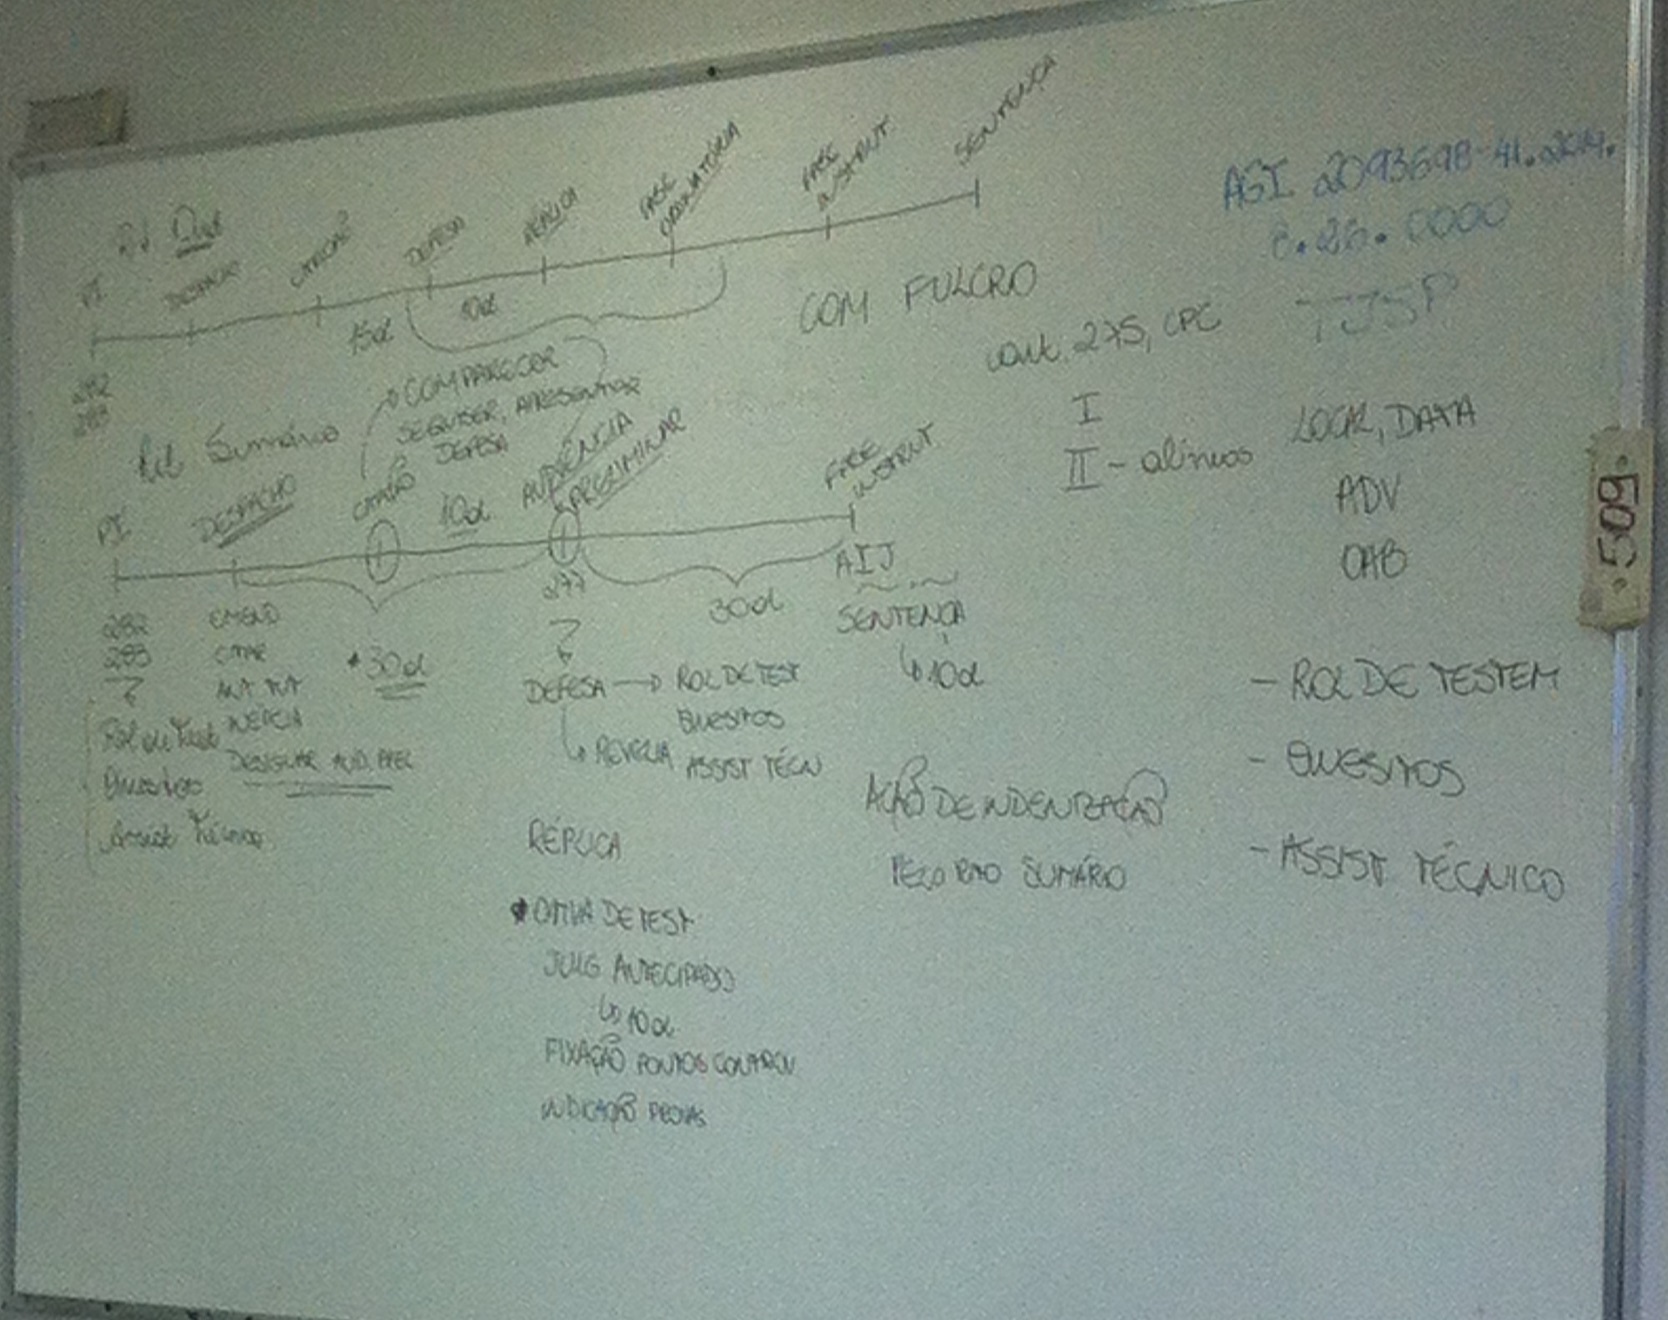 Rit Ord
PI
DESPACHO
CITAÇÃO
DEFESA
RÉPLICA
FASE
FASE
INSTRUT
SENTENÇA
15d
10d
282
283
Rit Sumário
COMPARECER
SE QUISER, APRESENTAR
DEFESA
PI
DESPACHO
CITAÇÃO
10d
AUDIÊNCIA
PRELIMINAR
FASE
INSTRUT
AIJ
282
283
EMEND
CITAR
ANT TUT
INÉPCIA
DESIGNAR AUD. PREL
Rol de Test
Quesitos
Assist Técnico
+30d
277
DEFESA → ROL DE TEST
QUESITOS
ASSIST TÉCN
REVELIA
30d
SENTENÇA
10d
RÉPLICA
OITIVA DE TEST
JULG ANTECIPADO
10d
FIXAÇÃO PONTOS CONTROV
INDICAÇÃO PROVAS
COM FULCRO
art. 275, CPC
I
II - alíneas
AÇÃO DE INDENIZAÇÃO
PELO RITO SUMÁRIO
AGI 2093698-41.2014.
8.26.0000
TJSP
LOCAL, DATA
ADV
OAB
- ROL DE TESTEM
- QUESITOS
- ASSIST TÉCNICO
509